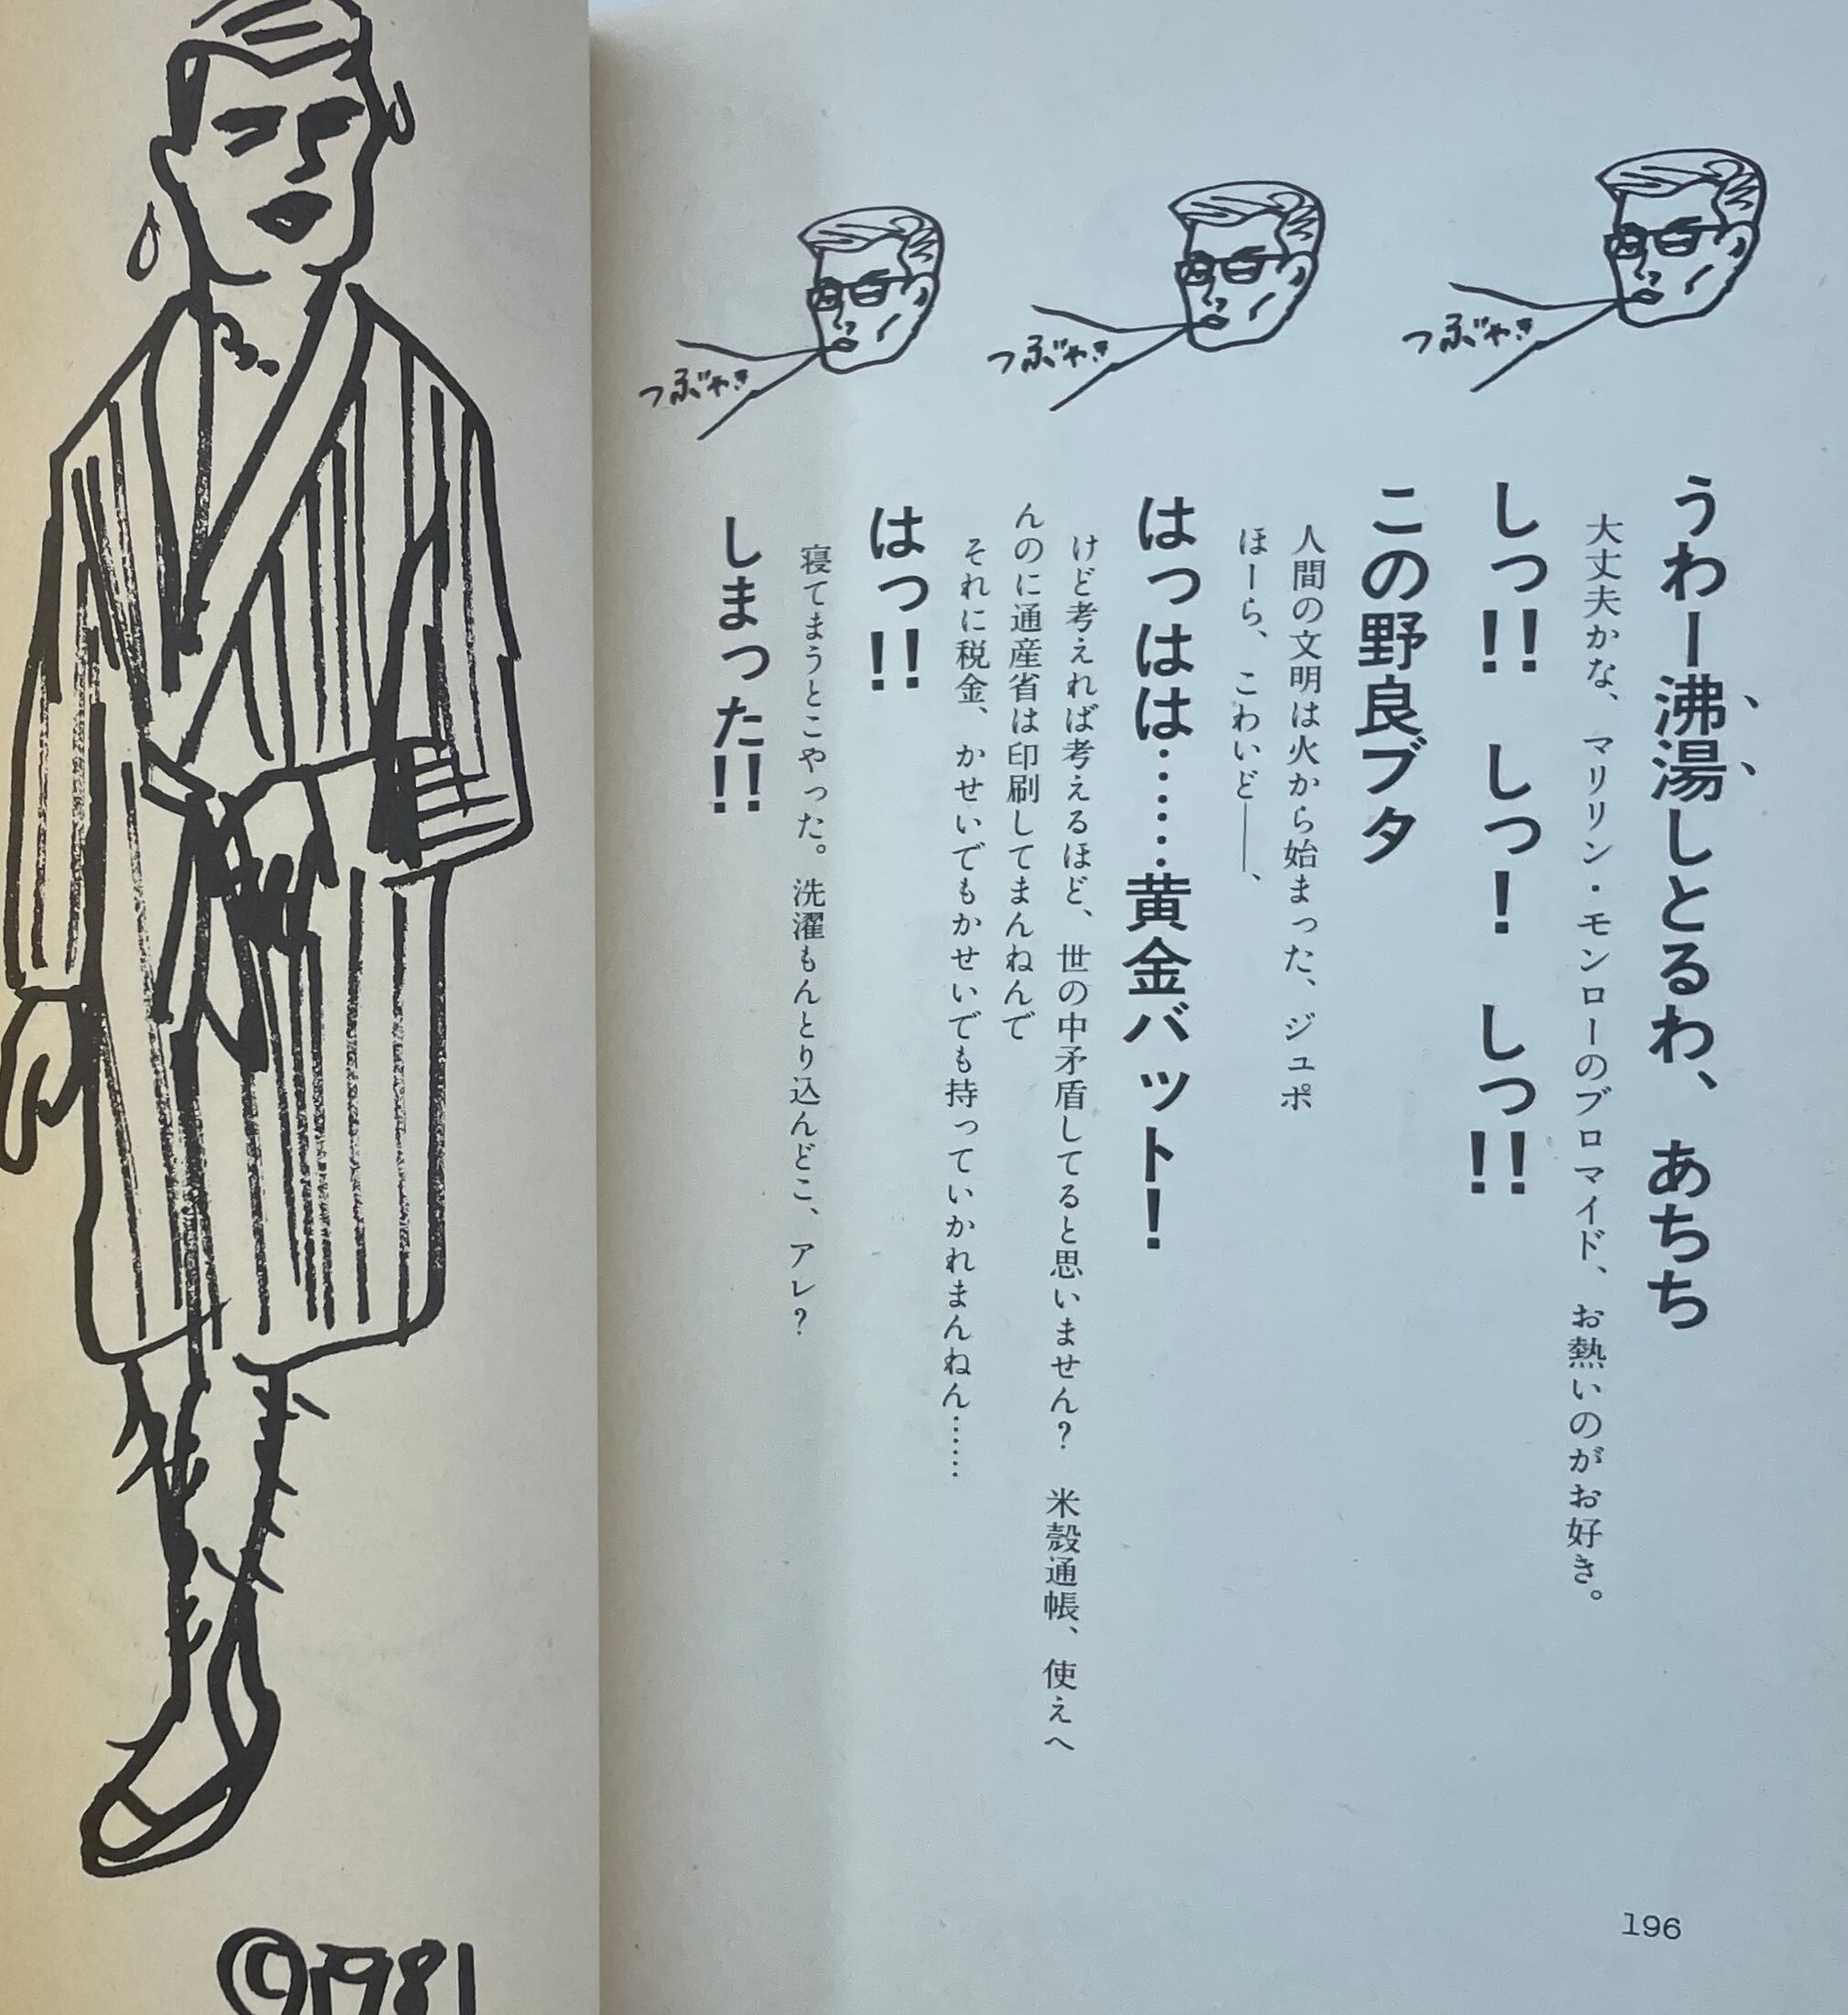 うわー沸湯しとるわ、あちち
大丈夫かな、マリリン・モンローのブロマイド、お熱いのがお好き。
しっ!! しっ! しっ!!
この野良ブタ
人間の文明は火から始まった、ジュポ
ほーら、こわいど——、
はっはは……黄金バット!
けど考えれば考えるほど、世の中矛盾してると思いません? 米殻通帳、使えへ
んのに通産省は印刷してまんねんで
それに税金、かせいでもかせいでも持っていかれまんねん……
はっ!!
寝てまうとこやった。洗濯もんとり込んどこ、アレ?
しまった!!
つぶやき
つぶやき
つぶやき
196
©1981